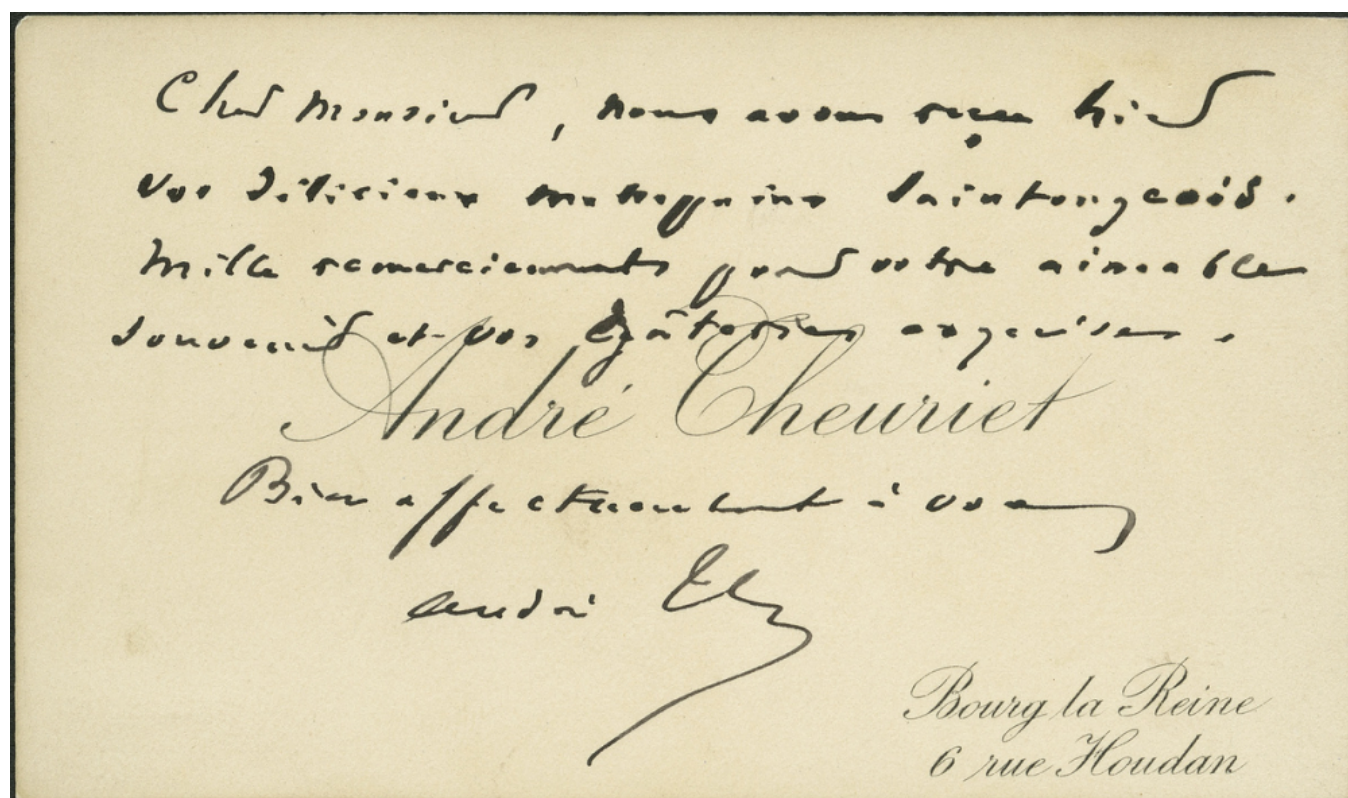 Cher Monsieur, nous avons reçu hier
vos délicieux massepains Saintongeois.
Mille remerciements pour votre aimable
souvenir et vos gâteries exquises.
André Theuriet
Bien affectueusement à vous
André Th
Bourg la Reine
6 rue Houdan